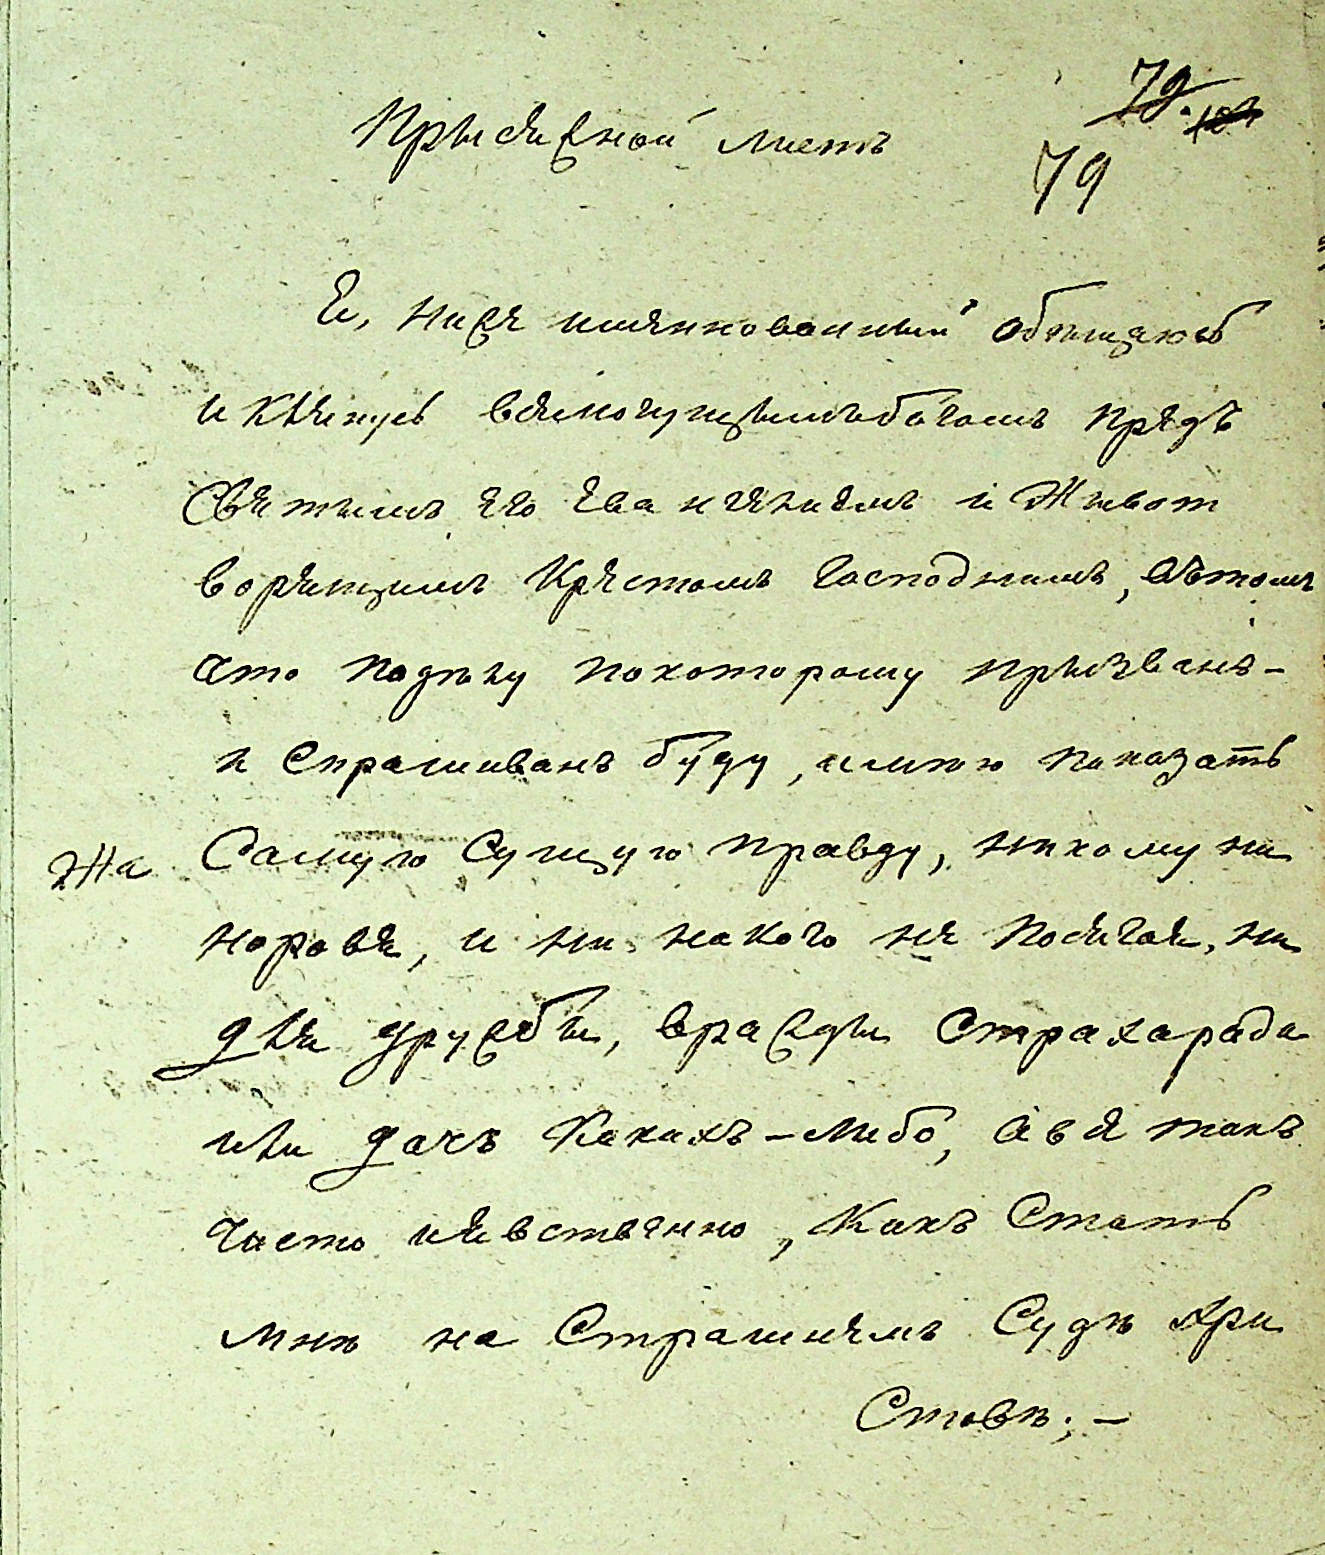 79. 124
Присяжной листъ
79
Я, ниже имяннованный обѣщаюсь
и клянусь всемогущимъ богомъ предъ
Святымъ его Евангениемъ и Живот
ворящимъ Крестомъ Господнимъ, вътомъ
что подѣлу покоторому призванъ-
и спрашиванъ буду, имѣю показать
Жа Самую Сущую правду, никому ни
норовя, и ни накого не посягая, ни
для дружбы, вражды Страхаради
или дачь Какихъ-либо, а все такъ
чисто и явственно, Какъ Стать
мнѣ на Страшнемъ Судѣ Хри
Стовѣ; -